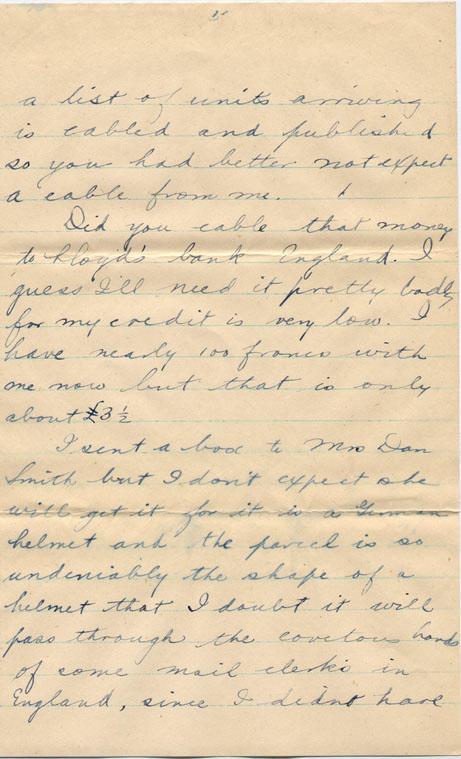 5
a list of units arriving
is cabled and published
so you had better not expect
a cable from me.
Did you cable that money
to Lloyd's bank England. I
guess I'll need it pretty badly
for my credit is very low. I
have nearly 100 francs with
me now but that is only
about £3 ½
I sent a box to Mrs Dan
Smith but I don't expect she
will get it for it is a German
helmet and the parcel is so
undeniably the shape of a
helmet that I doubt it will
pass through the covetous hands
of some mail clerks in
England, since I didnt have